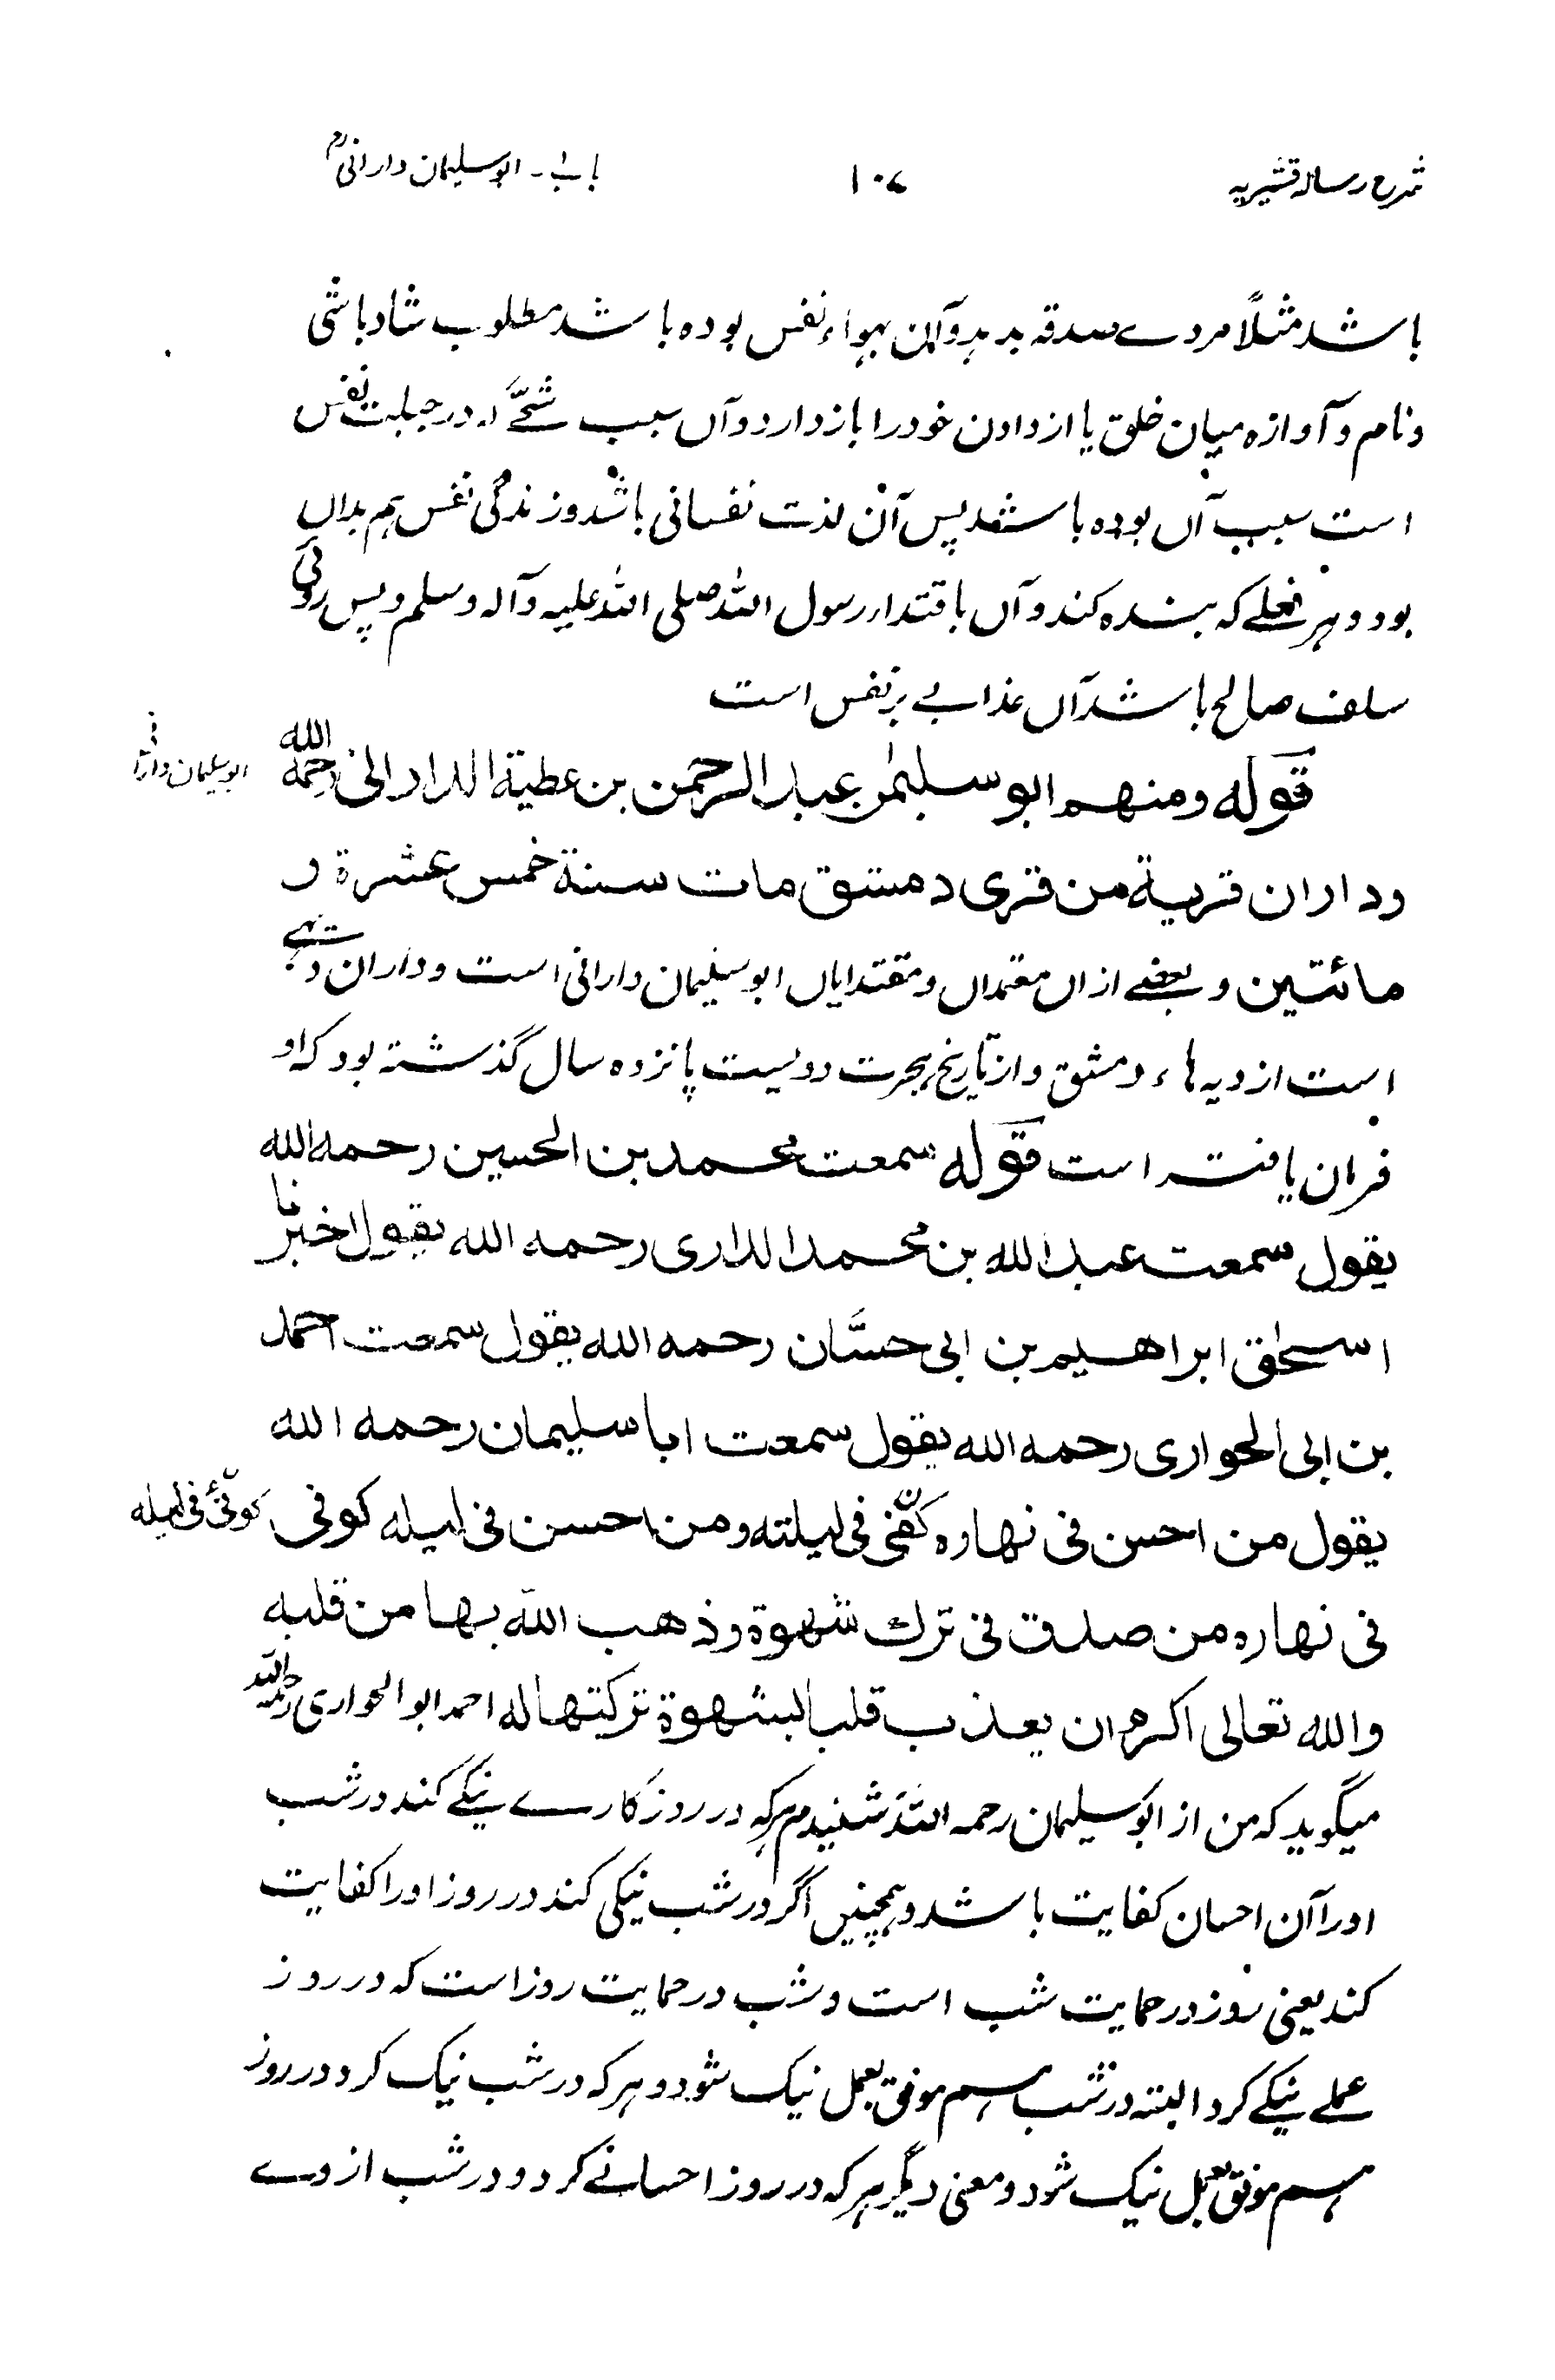 شرح رسالہ قشیریہ ۱۰۷ باب۔ ابو سلیمان دارانیؒ
باشد مثلاً مردے صدقہ بدہد و آں بہواء نفس بودہ باشد مطلوب شاد باشی
و نام و آوازہ میان خلق یا از دادن خود را باز دارد و آں سبب شحّے کہ در جبلت نفس
است سبب آں بودہ باشد پس آن لذت نفسانی باشد و زندگی نفس ہم بداں
بود و ہر فعلے کہ بندہ کند و آں باقتداء رسول اللہ صلی اللہ علیہ وآلہ وسلم و پس روئی
سلف صالح باشد آں عذابے بر نفس است
قوله ومنهم ابو سليمٰن عبد الرحمن بن عطية الدارانى رحمه الله
ابو سلیمان دارانی
وداران قرية من قرى دمشق مات سنة خمس عشرة و
مائتين و بعضے ازاں مقتداں و مقتدایاں ابو سلیمان دارانی است و داران دیہے
است از دیہ ہاء دمشق و از تاریخ ہجرت دویست پانزدہ سال گذشتہ بود کہ او
فرمان یافتہ است قوله سمعت محمد بن الحسين رحمه الله
يقول سمعت عبد الله بن محمد الدارى رحمه الله يقول اخبرنا
اسحٰق ابراهيم بن ابى حسّان رحمه الله يقول سمعت احمد
بن ابى الحوارى رحمه الله يقول سمعت ابا سليمان رحمه الله
يقول من احسن فى نهاره كفى فى ليلته ومن احسن فى ليله كوفى
كوفئ فى ليله
فى نهاره من صدق فى ترك شهوة وذهب الله بها من قلبه
والله تعالى اكرم ان يعذب قلبا لشهوة تركتها له احمد ابو الحواری رحمہ اللہ
میگوید کہ من از ابو سلیمان رحمہ اللہ شنیدم ہرکہ در روز کارے نیکے کند در شب
اورا آن احسان کفایت باشد و ہمچنیں اگر در شب نیکی کند در روز اورا کفایت
کند یعنی روز در حمایت شب است و شب در حمایت روز است کہ در روز
عملے نیکے کرد البتہ در شب ہم موفق بعمل نیک شود و ہر کہ در شب نیک کرد در روز
ہم موفق بعمل نیک شود و معنی دیگر ہر کہ در روز احسانے کرد و در شب از وے